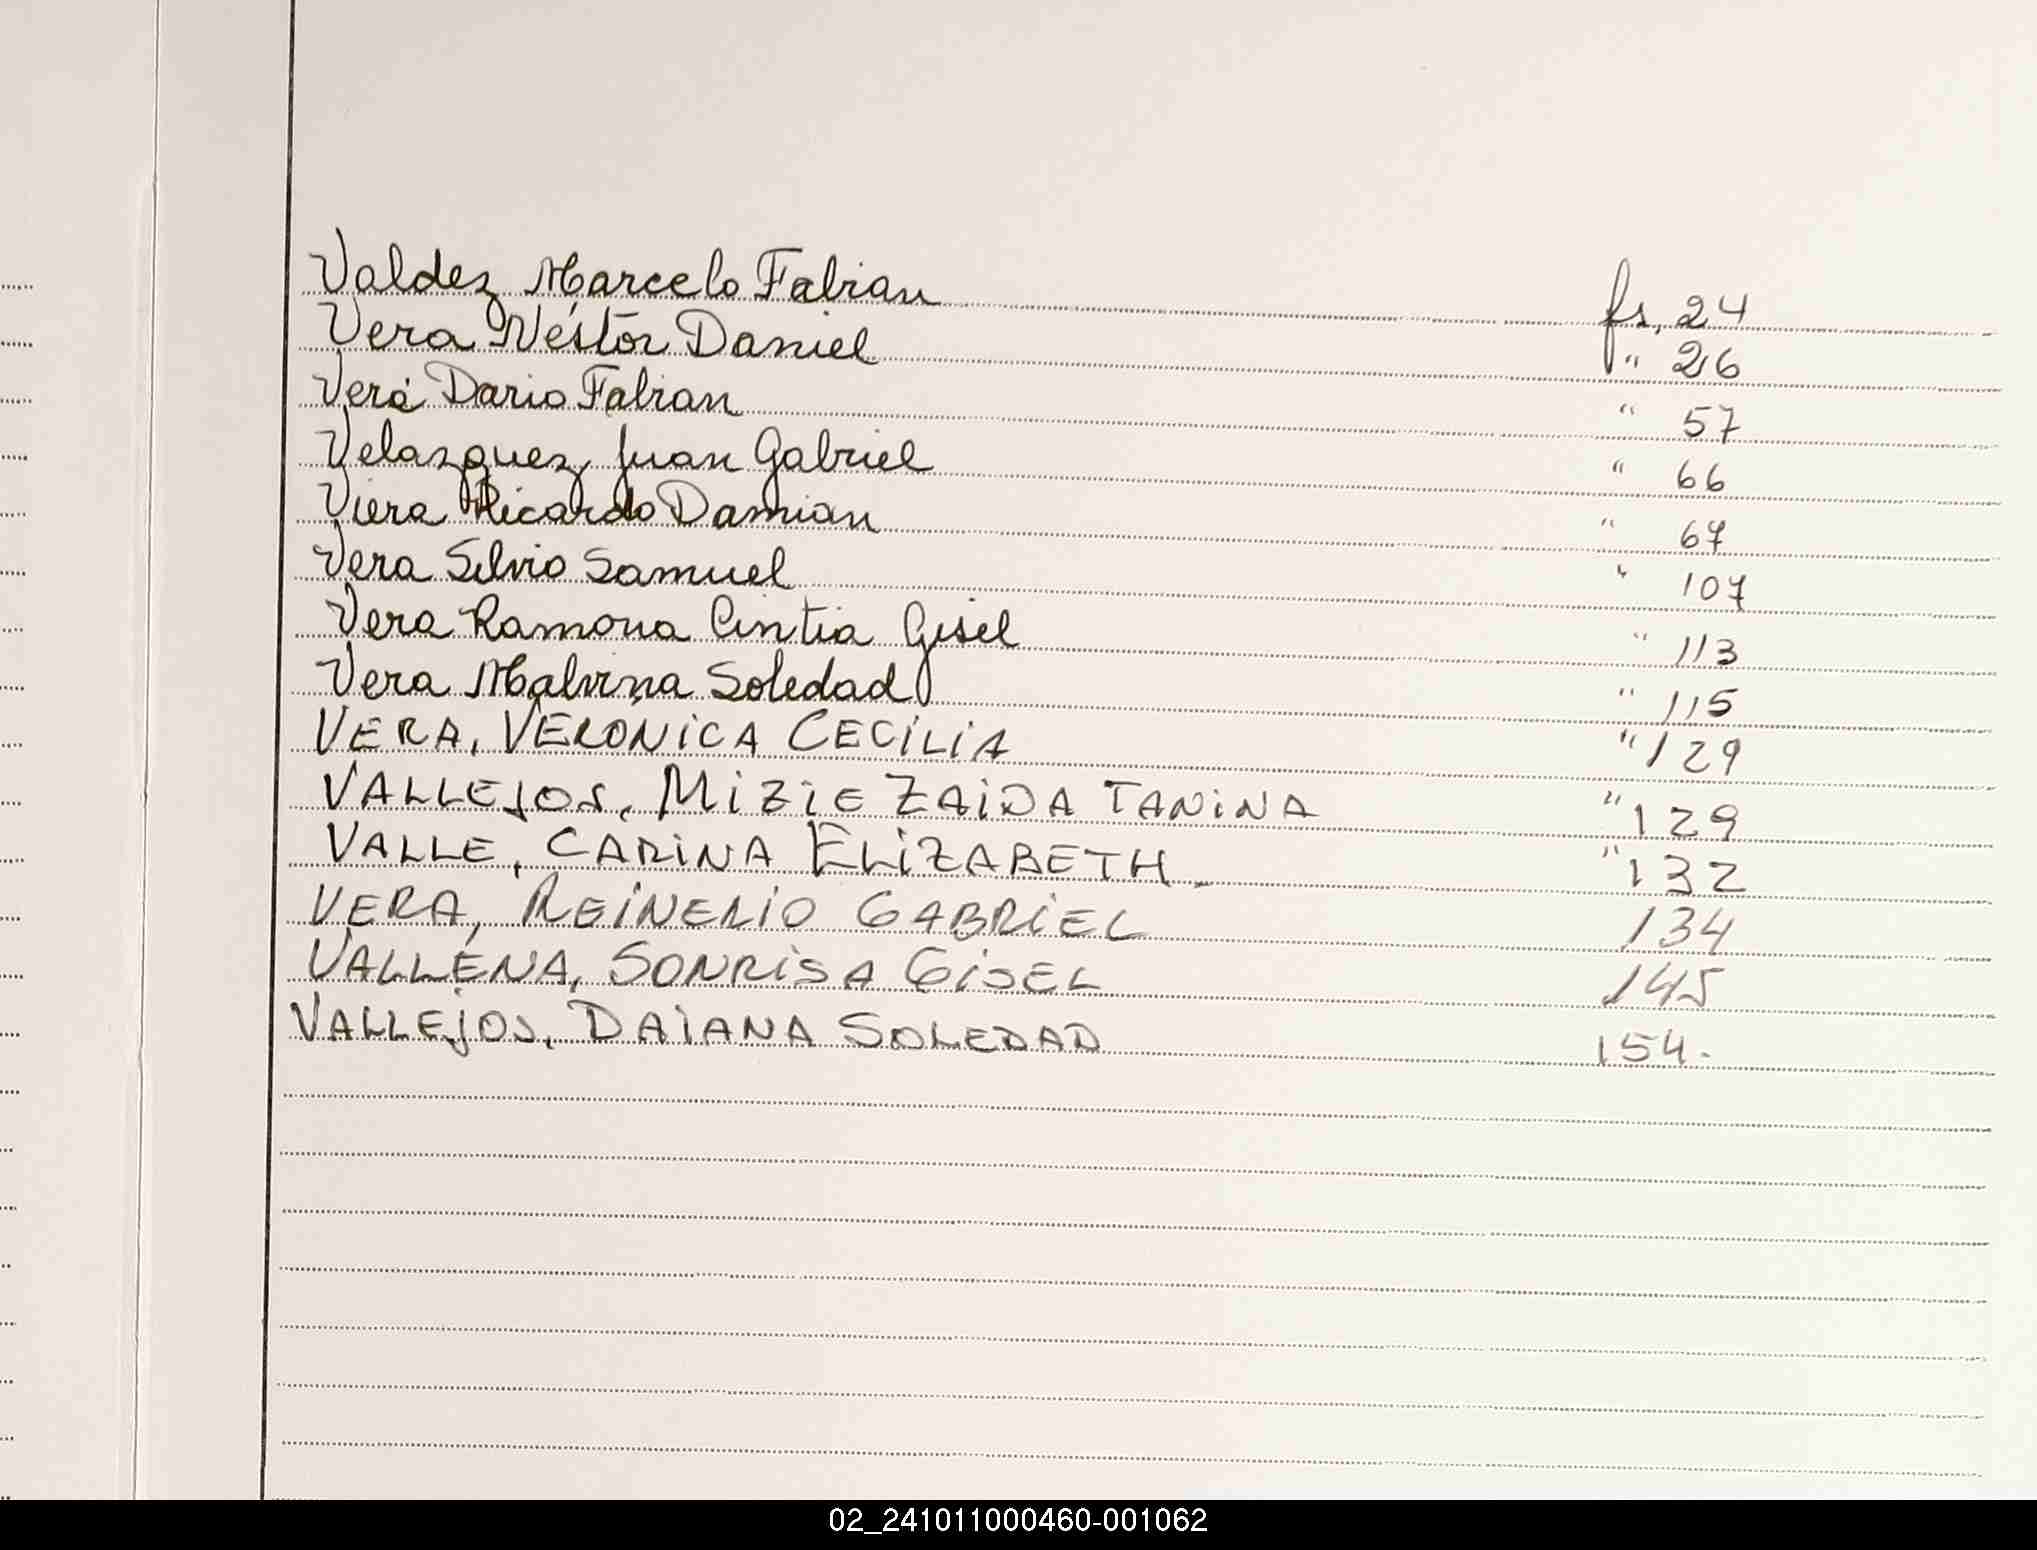 Valdez Marcelo Fabian fs. 24
Vera Néstor Daniel " 26
Vera Dario Fabian " 57
Velazquez Juan Gabriel " 66
Viera Ricardo Damian " 67
Vera Silvio Samuel " 107
Vera Ramona Cintia Gisel " 113
Vera Malvina Soledad " 115
VERA, VERÓNICA CECILIA " 129
VALLEJOS, MIZIE ZAIDA TANINA " 129
VALLE, CARINA ELIZABETH " 132
VERA, REINERIO GABRIEL 134
VALLENA, SONRISA GISEL 145
VALLEJOS, DAIANA SOLEDAD 154.
02_241011000460-001062